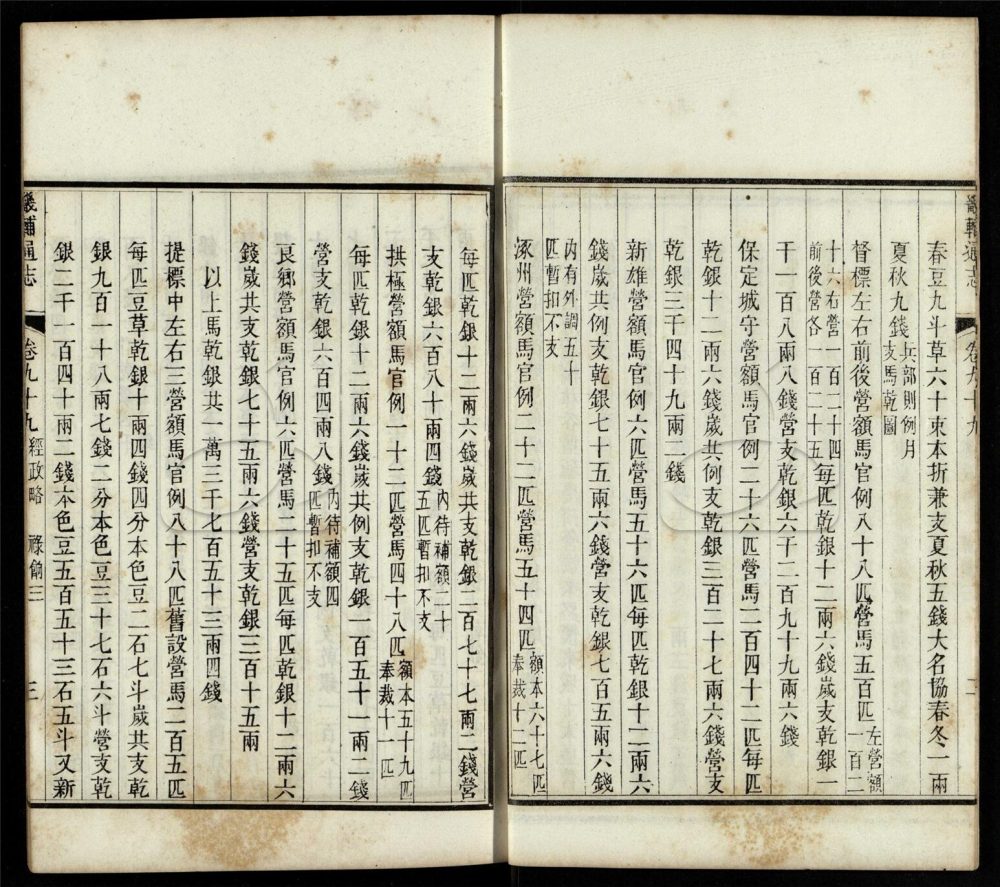 畿輔通志
卷九十九
二
春豆九斗草六十束本折兼支夏秋五錢大名協春冬一兩
夏秋九錢兵部則例月
支馬乾圖
督標左右前後營額馬官例八十八匹營馬五百匹左營額
一百二
十六右營一百二十四
前後營各一百二十五每匹乾銀十二兩六錢歲支乾銀一
千一百八兩八錢營支乾銀六千二百九十九兩六錢
保定城守營額馬官例二十六匹營馬二百四十二匹每匹
乾銀十二兩六錢歲共例支乾銀三百二十七兩六錢營支
乾銀三千四十九兩二錢
新雄營額馬官例六匹營馬五十六匹每匹乾銀十二兩六
錢歲共例支乾銀七十五兩六錢營支乾銀七百五兩六錢
內有外調五十
匹暫扣不支
涿州營額馬官例二十二匹營馬五十四匹額本六十七匹
奉裁十二匹
每匹乾銀十二兩六錢歲共支乾銀二百七十七兩二錢營
支乾銀六百八十兩四錢內待補額二十
五匹暫扣不支
拱極營額馬官例一十二匹營馬四十八匹額本五十九匹
奉裁十一匹
每匹乾銀十二兩六錢歲共例支乾銀一百五十一兩二錢
營支乾銀六百四兩八錢內待補額四
匹暫扣不支
良鄉營額馬官例六匹營馬二十五匹每匹乾銀十二兩六
錢歲共支乾銀七十五兩六錢營支乾銀三百十五兩
以上馬乾銀共一萬三千七百五十三兩四錢
提標中左右三營額馬官例八十八匹舊設營馬二百五匹
每匹豆草乾銀十兩四錢四分本色豆二石七斗歲共支乾
銀九百一十八兩七錢二分本色豆三十七石六斗營支乾
銀二千一百四十兩二錢本色豆五百五十三石五斗又新
畿輔通志
卷九十九 經政略 祿餉三
三